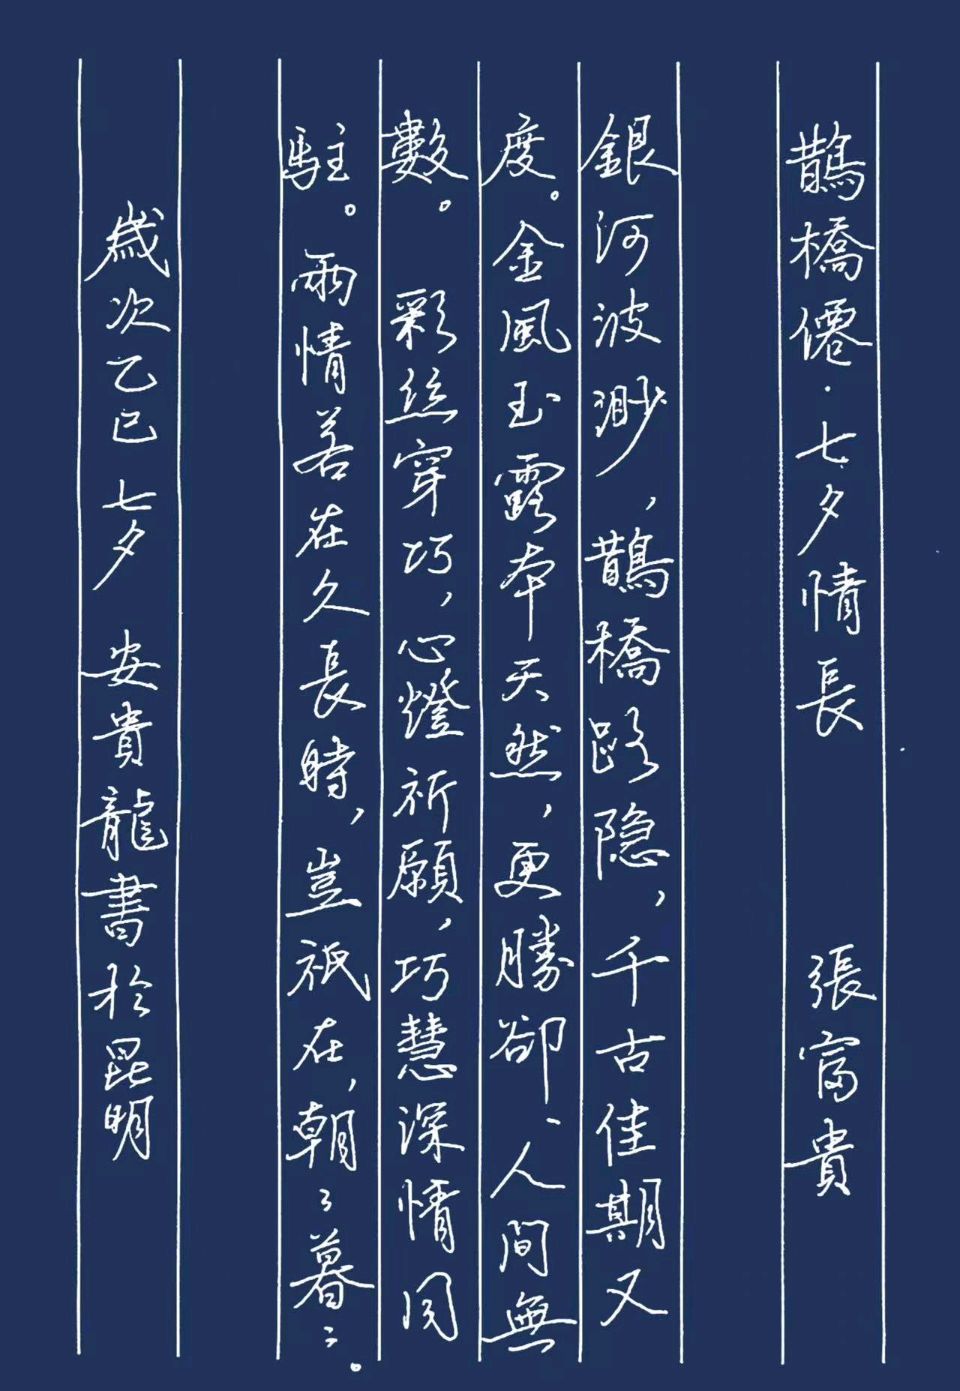 鵲橋僊·七夕情長 張富貴
銀河波渺，鵲橋路隐，千古佳期又
度。金風玉露本天然，更勝卻、人間無
數。 彩絲穿巧，心燈祈願，巧慧深情同
駐。兩情若在久長時，豈祇在，朝〻暮〻。
歲次乙巳七夕 安貴龍書於昆明